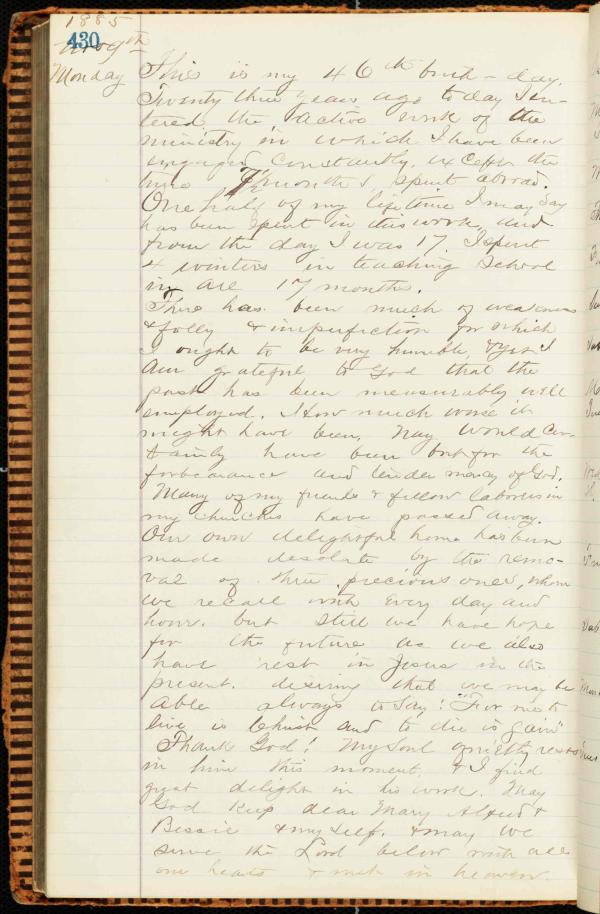 1885
430
Nov 9th
Monday This is my 46th birth-day.
Twenty three years ago today I en-
tered the active work of the
ministry in which I have been
engaged constantly, except the
time 7½ months, spent abroad.
One half of my life time I may say
has been spent in this work, and
from the day I was 17. I spent
4 winters in teaching School
in all 17 months.
There has been much of weakness
& folly & imperfection for which
I ought to be very humble, & yet I
am grateful to God that the
past has been measurably well
employed. How much worse it
might have been, nay would cer-
tainly have been but for the
forbearance and tender mercy of God.
Many of my friends & fellow laborers in
my churches have passed away.
Our own delightful home has been
made desolate by the remo-
val of three precious ones, whom
we recall with every day and
hour. but still we have hope
for the future as we also
have rest in Jesus in the
present. desiring that we may be
able always to say: "For me to
live is Christ and to die is gain"
Thank God! My soul quietly rests
in him this moment, & I find
great delight in his work. May
God keep dear Mary Alfred &
Bessie & myself. & may we
serve the Lord below with all
our hearts & meet in heaven.